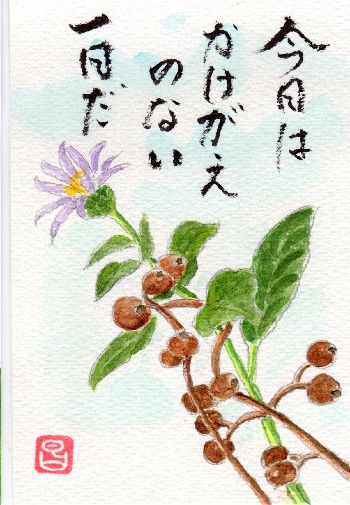 今日は
かけがえ
のない
一日だ